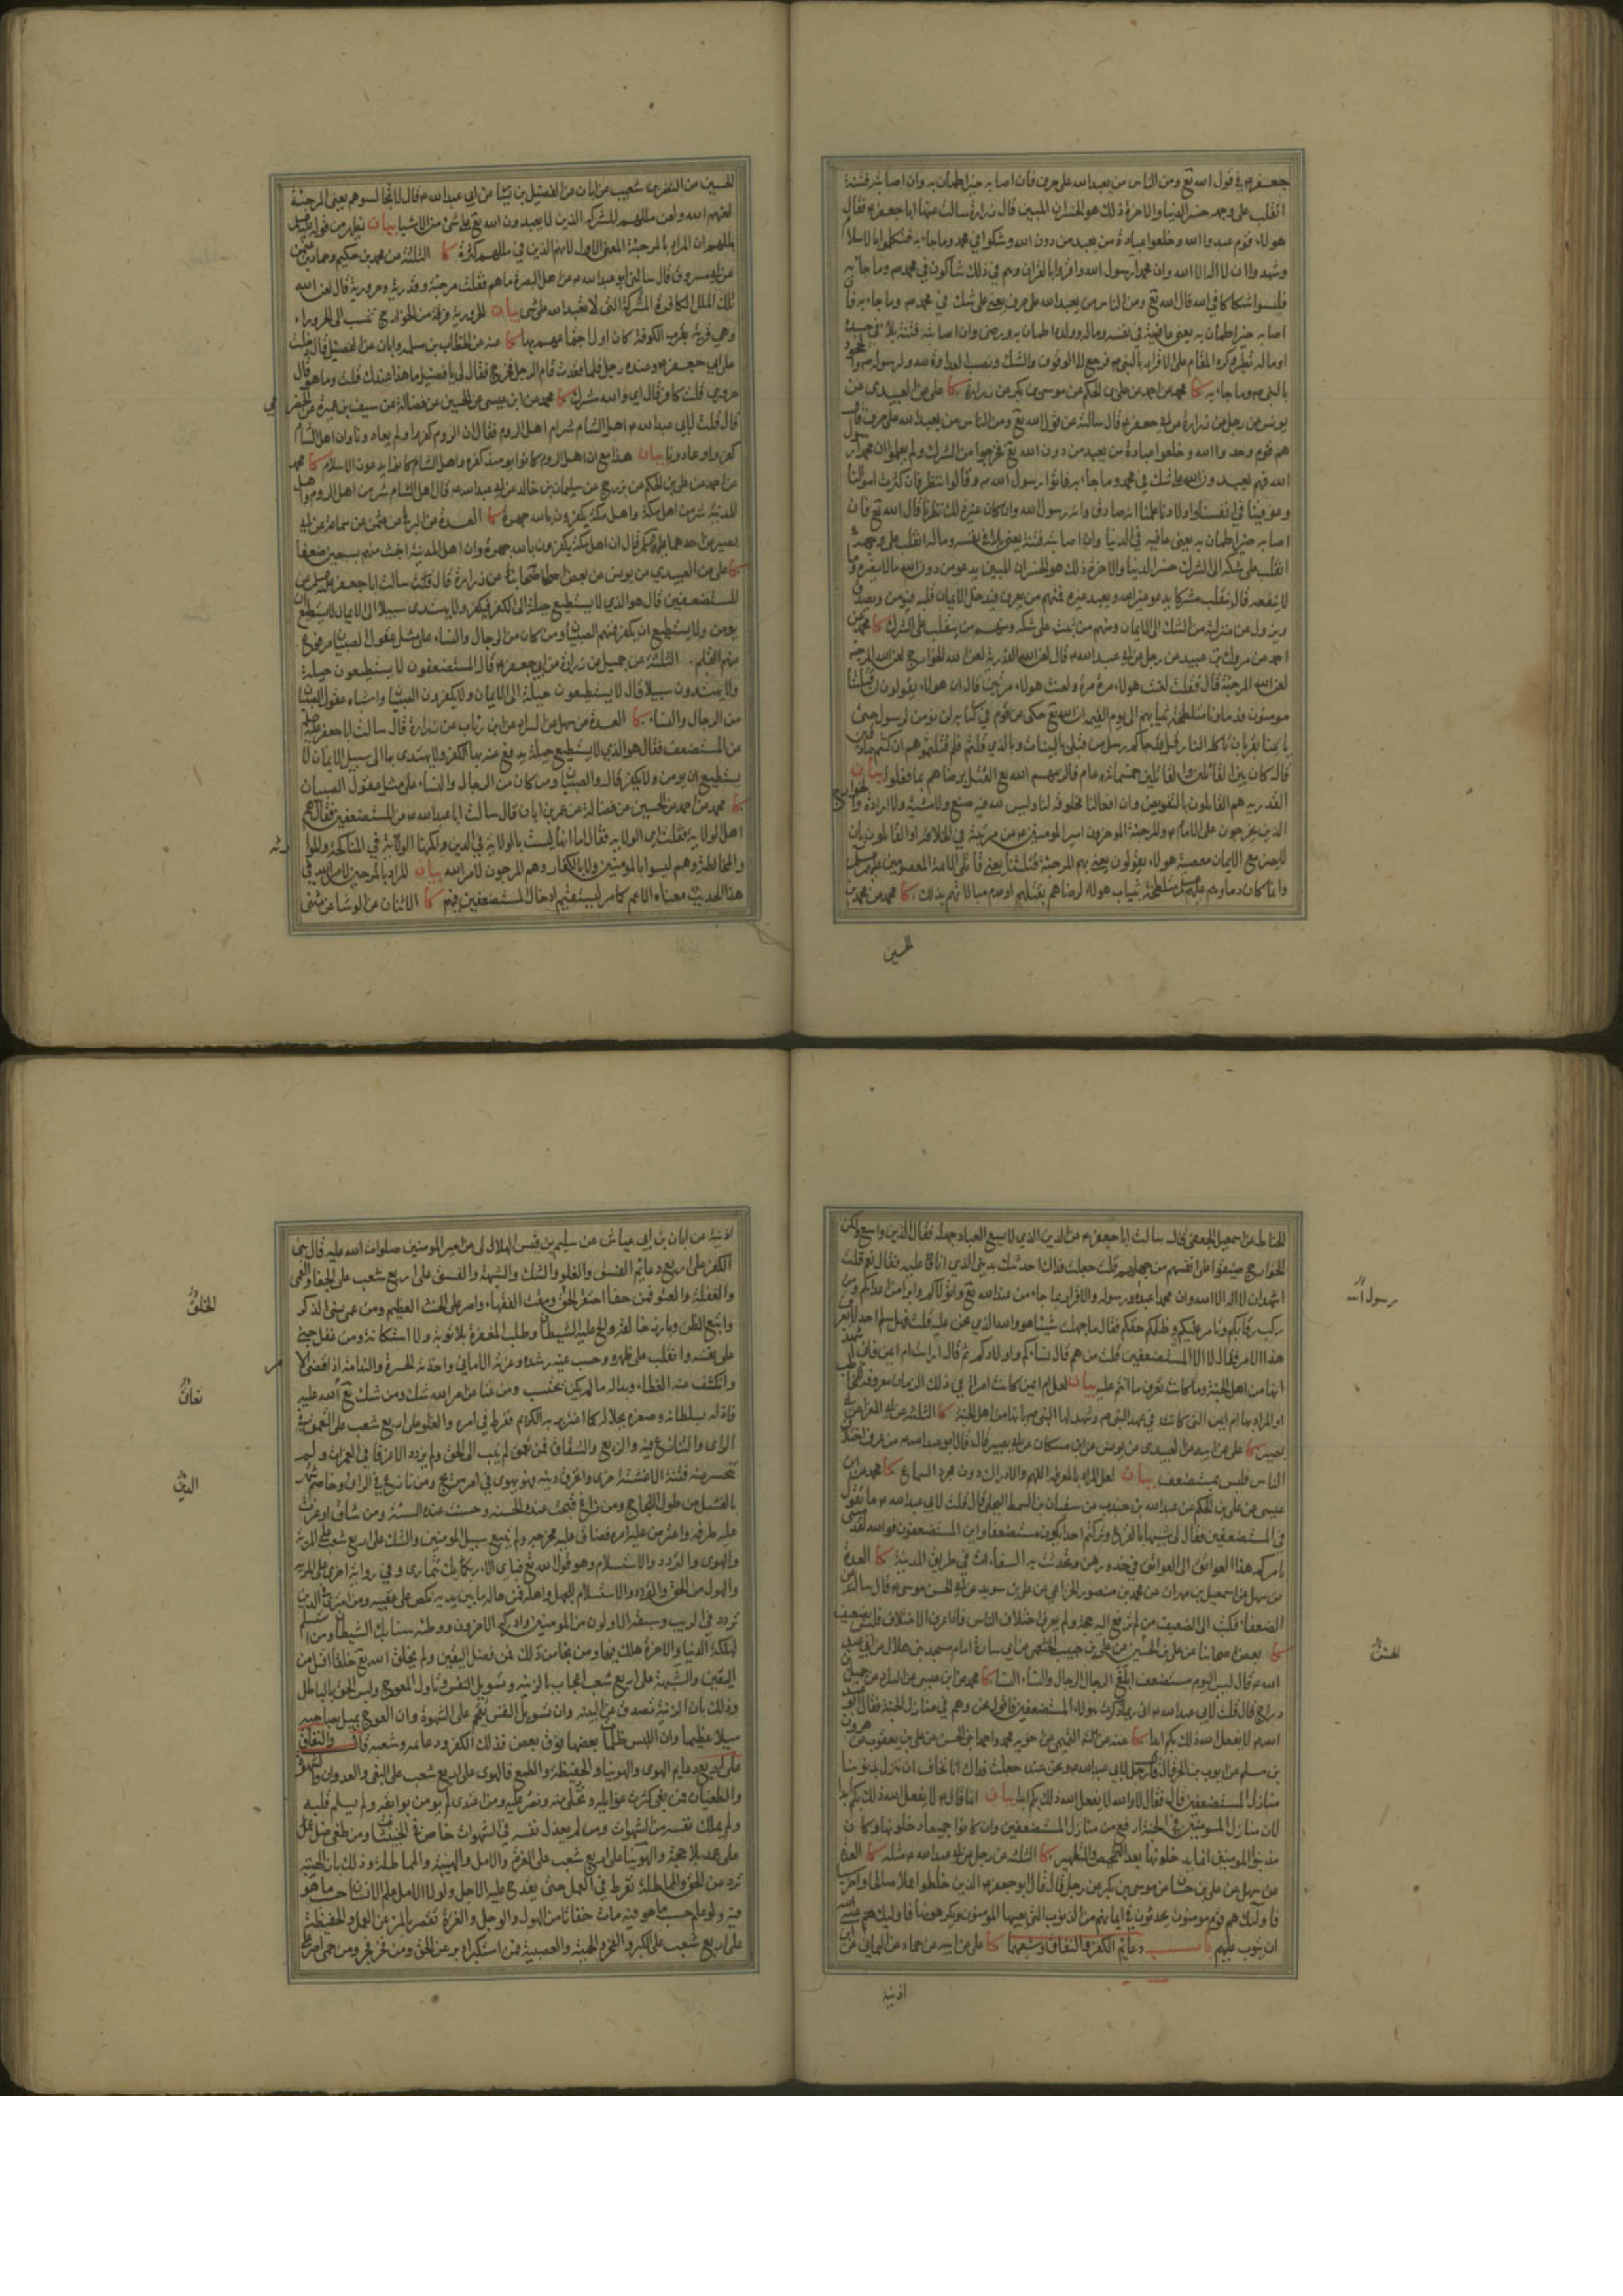 جعفر م في قول الله تع ومن الناس من يعبد الله على حرف فان اصابه خير اطمان به وان اصابته فتنة
انقلب على وجهه خسر الدنيا والاخرة ذلك هو الخسران المبين قال زرارة سالت عنها ابا جعفر م فقال
هولاء قوم عبدوا الله وخلعوا عبادة من يعبد من دون الله وشكوا في محمد وما جاء به فتكلموا بالاسلام
وشهدوا ان لا اله الا الله وان محمدا رسول الله واقروا بالقران وهم في ذلك شاكون في محمد م وما جاء به
فليسوا شكاكا في الله قال الله تع ومن الناس من يعبد الله على حرف يعني على شك في محمد م وما جاء به فان
اصابه خير اطمان به يعني عافية في نفسه وماله وولده اطمان به ورضي وان اصابته فتنة بلاء في جسده
او ماله تطير وكره المقام على الاقرار بالنبي م فرجع الى الوقوف والشك ونصب العداوة لله ولرسوله م والجحود
بالنبي م وما جاء به كا محمد عن احمد عن علي بن الحكم عن موسى بن بكر عن زرارة كا علي عن العبيدي عن
يونس عن رجل عن زرارة عن ابي جعفر م قال سالته عن قول الله تع ومن الناس من يعبد الله على حرف قال
هم قوم وحدوا الله وخلعوا عبادة من يعبد من دون الله تع فخرجوا من الشرك ولم يعلموا ان محمدا رسول
الله فهم يعبدون الله على شك في محمد وما جاء به فاتوا رسول الله م وقالوا ننظر فان كثرت اموالنا
وعوفينا في انفسنا واولادنا علمنا انه صادق وانه رسول الله وان كان غير ذلك نظرنا قال الله تع فان
اصابه خير اطمان به يعني عافية في الدنيا وان اصابته فتنة يعني بلاء في نفسه وماله انقلب على وجهه
انقلب على شكه الى الشرك خسر الدنيا والاخرة ذلك هو الخسران المبين يدعو من دون الله ما لا يضره وما
لا ينفعه قال ينقلب مشركا يدعو غير الله ويعبد غيره فمنهم من يعرف فيدخل الايمان قلبه فيؤمن ويصدق
ويزول عن منزلته من الشك الى الايمان ومنهم من يثبت على شكه ومنهم من ينقلب على الشرك كا محمد عن
احمد عن مروك بن عبيد عن رجل عن ابي عبد الله م قال لعن الله القدرية لعن الله الخوارج لعن الله المرجئة
لعن الله المرجئة قال فقلت لعنت هولاء مرة مرة ولعنت هولاء مرتين قال ان هولاء يقولون ان قتلتنا
مومنون فدماونا متلطخة بثيابهم الى يوم القيمة ان الله تع حكى عن قوم في كتابه لن نومن لرسول حتى
ياتينا بقربان تاكله النار قل قد جاءكم رسل من قبلي بالبينات وبالذي قلتم فلم قتلتموهم ان كنتم صادقين
قال كان بين القائلين والقاتلين خمسمائة عام فالزمهم الله تع القتل برضاهم بما فعلوا بيان
القدرية هم القايلون بالتفويض وان افعالنا مخلوقة لنا وليس لله فيه صنع ولا مشية ولا ارادة والخوارج
الذين يخرجون على الامام م والمرجئة الموخرون امير المومنين م عن مرتبته في الخلافة او القايلون بان
لا يضر مع الايمان معصية هولاء يقولون يعني بهم المرجئة قتلتنا يعني قاتلي الائمة المعصومين
وانما كان دماوهم متلطخة بثياب هولاء لرضاهم بقتلهم او عدم مبالاتهم بذلك كا محمد عن محمد بن
الحسين
الحسين عن النضر بن شعيب عن ابان عن الفضيل بن يسار عن ابي عبد الله م قال لا تجالسوهم يعني المرجئة
لعنهم الله ولعن مللهم المشركة الذين لا يعبدون الله تع على شئ من الاشيا بيان يظهر من قوله
مللهم ان المراد بالمرجئة المعنى الاول لانهم الذين في مللهم كثرة كا الثلثة عن محمد بن حكيم وحماد بن عثمن
عن ابي مسروق قال سالني ابو عبد الله م عن اهل البصرة ما هم فقلت مرجئة وقدرية وحرورية قال لعن الله
تلك الملل الكافرة المشركة التي لا تعبد الله على شئ بيان الحرورية فرقة من الخوارج تنسب الى الحروراء
وهي قرية بقرب الكوفة كان اول اجتماعهم بها كا عنه عن الخطاب بن سلمة وابان عن الفضيل قال دخلت
على ابي جعفر م وعنده رجل فلما قعدت قام الرجل فخرج فقال لي يا فضيل ما هذا عندك قلت وما هو قال
حروري قلت كافر قال اي والله مشرك كا محمد عن ابن عيسى عن الحسين عن فضالة عن سيف بن عميرة عن الحضرمي
قال قلت لابي عبد الله م اهل الشام شر ام اهل الروم فقال ان الروم كفروا ولم يعادونا وان اهل الشام
كفروا وعادونا بيان هذا مع ان اهل الروم كانوا يومئذ كفرة واهل الشام كانوا يدعون الاسلام كا محمد
عن احمد عن علي بن الحكم عن بزرج عن سليمان بن خالد عن ابي عبد الله م قال اهل الشام شر من اهل الروم واهل
المدينة شر من اهل مكة واهل مكة يكفرون بالله جهرة كا العدة عن البرقي عن عثمن عن سماعة عن ابي
بصير عن احدهما قال ان اهل مكة يكفرون بالله جهرة وان اهل المدينة اخبث منهم بسبعين ضعفا
كا علي عن العبيدي عن يونس عن بعض اصحابنا عن زرارة قال قلت سالت ابا جعفر م عن
المستضعفين قال هو الذي لا يستطيع حيلة الى الكفر فيكفر ولا يهتدى سبيلا الى الايمان لا يستطيع ان
يومن ولا يستطيع ان يكفر فمنهم الصبيان ومن كان من الرجال والنساء على مثل عقول الصبيان مرفوع
عنهم القلم الثلثة عن جميل عن زرارة عن ابي جعفر م قال المستضعفون لا يستطيعون حيلة
ولا يهتدون سبيلا قال لا يستطيعون حيلة الى الايمان ولا يكفرون الصبيان واشباه عقول الصبيان
من الرجال والنساء كا العدة عن سهل عن السراد عن ابن رئاب عن زرارة قال سالت ابا جعفر
عن المستضعف فقال هو الذي لا يستطيع حيلة يدفع عنه بها الكفر ولا يهتدى بها الى سبيل الايمان لا
يستطيع ان يومن ولا يكفر قال والصبيان ومن كان من الرجال والنساء على مثل عقول الصبيان
كا محمد عن احمد عن الحسين عن فضالة عن عمر بن ابان قال سالت ابا عبد الله م عن المستضعفين فقال هم
اهل الولاية فقلت اي الولاية فقال اما انها ليست بالولاية في الدين ولكنها الولاية في المناكحة والموارثة
والمخالطة وهم ليسوا بالمومنين ولا بالكفار وهم المرجون لامر الله بيان المراد بالمرجين لامر الله في
هذا الحديث معناه الاعم كما مر ادخال المستضعفين فيهم كا الاثنان عن الوشا عن مثنى
الحناط عن اسمعيل الجعفي قال سالت ابا جعفر م عن الدين الذي لا يسع العباد جهله فقال الدين واسع ولكن
الخوارج ضيقوا على انفسهم من جهلهم قلت جعلت فداك احدثك بديني الذي انا عليه فقال نعم قلت
اشهد ان لا اله الا الله وان محمدا عبده ورسوله والاقرار بما جاء من عند الله تع واتولاكم وابرا من عدوكم ومن
ركب رقابكم وتامر عليكم وظلمكم حقكم فقال ما جهلت شيئا هو والله الذي نحن عليه قلت فهل سلم احد لا يعرف
هذا الامر فقال لا الا المستضعفين قلت من هم قال نساءكم واولادكم ثم قال ارايت ام ايمن فاني اشهد
انها من اهل الجنة وما كانت تعرف ما انتم عليه بيان لعل ام ايمن كانت امراة في ذلك الزمان معروفة
او المراد بها ام ايمن التي كانت في عهد النبي م وشهد لها النبي م بانها من اهل الجنة كا الثلثة عن ابي المغرا عن ابي
بصير كا علي عن ابيه عن العبيدي عن يونس عن ابن مسكان عن ابي بصير قال قال ابو عبد الله م من عرف اختلاف
الناس فليس بمستضعف بيان لعل المراد بالمعرفة الفهم والادراك دون مجرد السماع كا محمد عن ابن
عيسى عن علي بن الحكم عن عبد الله بن جندب عن سفيان بن السمط البجلي قال قلت لابي عبد الله م ما تقول
في المستضعفين فقال لي شبيها بالفزع وتركتم احدا يكون مستضعفا واين المستضعفون فوالله لقد مشى
بامركم هذا العواتق الى العواتق في خدورهن وتحدثت به السقاءات في طريق المدينة كا العدة
عن سهل عن اسمعيل بن مهران عن محمد بن منصور الخزاعي عن علي بن سويد عن ابي الحسن موسى م قال سالته عن
الضعفا فكتب الى الضعيف من لم ترفع اليه حجة ولم يعرف اختلاف الناس فاذا عرف الاختلاف فليس بضعيف
كا بعض اصحابنا عن علي بن الحسين عن علي بن حبيب الخثعمي عن ابي سارة امام مسجد بني هلال عن ابي عبد
الله م قال ليس اليوم مستضعف ابلغ الرجال الرجال والنساء النساء كا محمد عن ابن عيسى عن السراد عن جميل بن
دراج قال قلت لابي عبد الله م اني ربما ذكرت هولاء المستضعفين فاقول نحن وهم في منازل الجنة فقال ابو عبد
الله م لا يفعل الله ذلك بكم ابدا كا عنه عن علي بن يعقوب عن مروان
بن مسلم عن ايوب بن الحر قال قال رجل لابي عبد الله م ونحن عنده جعلت فداك انا نخاف ان ننزل بذنوبنا
منازل المستضعفين قال فقال لا والله لا يفعل الله ذلك بكم ابدا بيان انما قال م لا يفعل الله ذلك بكم ابدا
لان منازل المومنين في الجنة ارفع من منازل المستضعفين وان كانوا جميعا دخلونها وكان
مذنبوا المومنين انما يدخلونها بعد التمحيص والتطهير كا الثلثة عن رجل عن ابي عبد الله م مثله كا العدة
عن سهل عن علي بن حسان عن موسى بن بكر عن رجل قال قال ابو جعفر م الذين خلطوا عملا صالحا واخر سيئا
فاولئك هم قوم مومنون يحدثون في ايمانهم من الذنوب التي يعيبها المومنون ويكرهونها فاوليك هم عسى الله
ان يتوب عليهم باب دعائم الكفر والنفاق وشعبهما كا علي عن ابيه عن حماد عن اليماني عن ابن
رسول الله
اذينة
اذينة عن ابان بن ابي عياش عن سليم بن قيس الهلالي عن امير المومنين صلوات الله عليه قال بني
الكفر على اربع دعائم الفسق والغلو والشك والشبهة والفسق على اربع شعب على الجفا والعمى
والغفلة والعتو فمن جفا احتقر الحق ومقت الفقهاء واصر على الحنث العظيم ومن عمى نسى الذكر
واتبع الظن وبارز خالقه والح عليه الشيطان وطلب المغفرة بلا توبة ولا استكانة ومن غفل جنى
على نفسه وانقلب على ظهره وحسب غيه رشدا وغرته الاماني واخذته الحسرة والندامة اذا قضى الامر
وانكشف عنه الغطاء وبدا له ما لم يكن يحتسب ومن عتا عن امر الله شك ومن شك تع الله عليه
فاذله بسلطانه وصغره بجلاله كما اغتر بربه الكريم وفرط في امره والغلو على اربع شعب على التعمق في
الراى والتنازع فيه والزيغ والشقاق فمن تعمق لم ينب الى الحق ولم يزدد الا غرقا في الغمرات ولم
تنحسر عنه فتنة الا غشيته اخرى وانخرق دينه فهو يهوى في امر مريج ومن نازع في الراى وخاصم شهر
بالفشل من طول اللجاج ومن زاغ قبحت عنده الحسنة وحسنت عنده السيئة ومن شاق اوعرت
عليه طرقه واعترض عليه امره فضاق عليه مخرجه ولم يتبع سبيل المومنين والشك على اربع شعب على المرية
والهوى والتردد والاستسلام وهو قول الله تع فباى الاء ربك تتمارى وفي رواية اخرى على المرية
والهول من الحق والتردد والاستسلام للجهل واهله فمن هاله ما بين يديه نكص على عقبيه ومن امترى في الدين
تردد في الريب وسبقه الاولون من المومنين وادركه الاخرون ووطئته سنابك الشيطان ومن استسلم
لهلكة الدنيا والاخرة هلك فيهما ومن نجا من ذلك فمن فضل اليقين ولم يخلق الله تع خلقا اقل من
اليقين والشبهة على اربع شعب اعجاب بالزينة وتسويل النفس وتاول العوج ولبس الحق بالباطل
وذلك بان الزينة تصدف عن البينة وان تسويل النفس يقحم على الشهوة وان العوج يميل بصاحبه
ميلا عظيما وان اللبس ظلمات بعضها فوق بعض فذلك الكفر ودعايمه وشعبه قال والنفاق
على اربع دعايم الهوى والهوينا والحفيظة والطمع فالهوى على اربع شعب على البغى والعدوان والشهوة
والطغيان فمن بغى كثرت غوايله وتخلى منه ونصر عليه ومن اعتدى لم يومن بوايقه ولم يسلم قلبه
ولم يملك نفسه من الشهوات ومن لم يعذل نفسه في الشهوات خاض في الخبيثات ومن طغى ضل
على عمد بلا حجة والهوينا على اربع شعب على الغرة والامل والهيبة والمماطلة وذلك بان الهيبة
ترد عن الحق والمماطلة تفرط في العمل حتى يقدم عليه الاجل ولولا الامل علم الانسان حسب ما هو
فيه ولو علم حسب ما هو فيه مات خفاتا من الهول والوجل والغرة تقصر بالمرء عن العمل والحفيظة
على اربع شعب على الكبر والفخر والحمية والعصبية فمن استكبر ادبر عن الحق ومن فخر فجر ومن حمى اصر